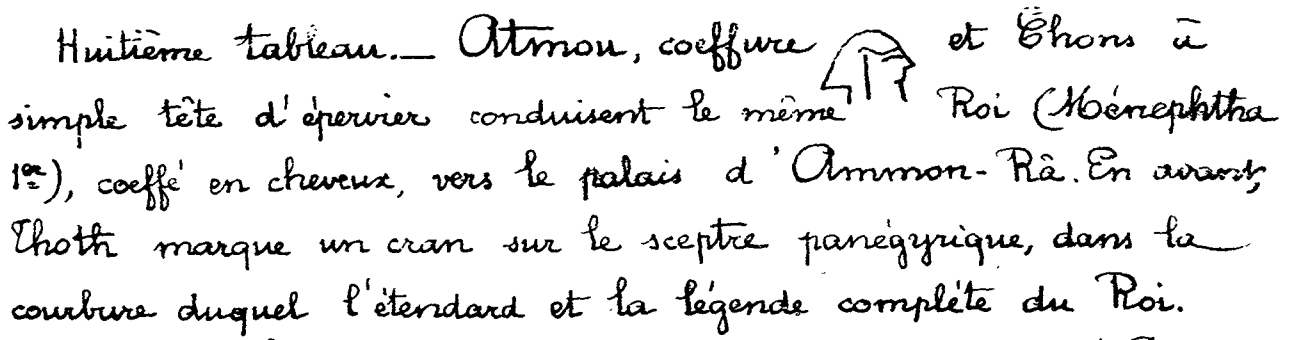 Huitième tableau. — Atmou, coeffure et Chons à
simple tête d'épervier conduisent le même Roi (Ménephtha
1er), coeffé en cheveux, vers le palais d'Ammon-Râ. En avant,
Thoth marque un cran sur le sceptre panégyrique, dans la
courbure duquel l'étendard et la légende complète du Roi.